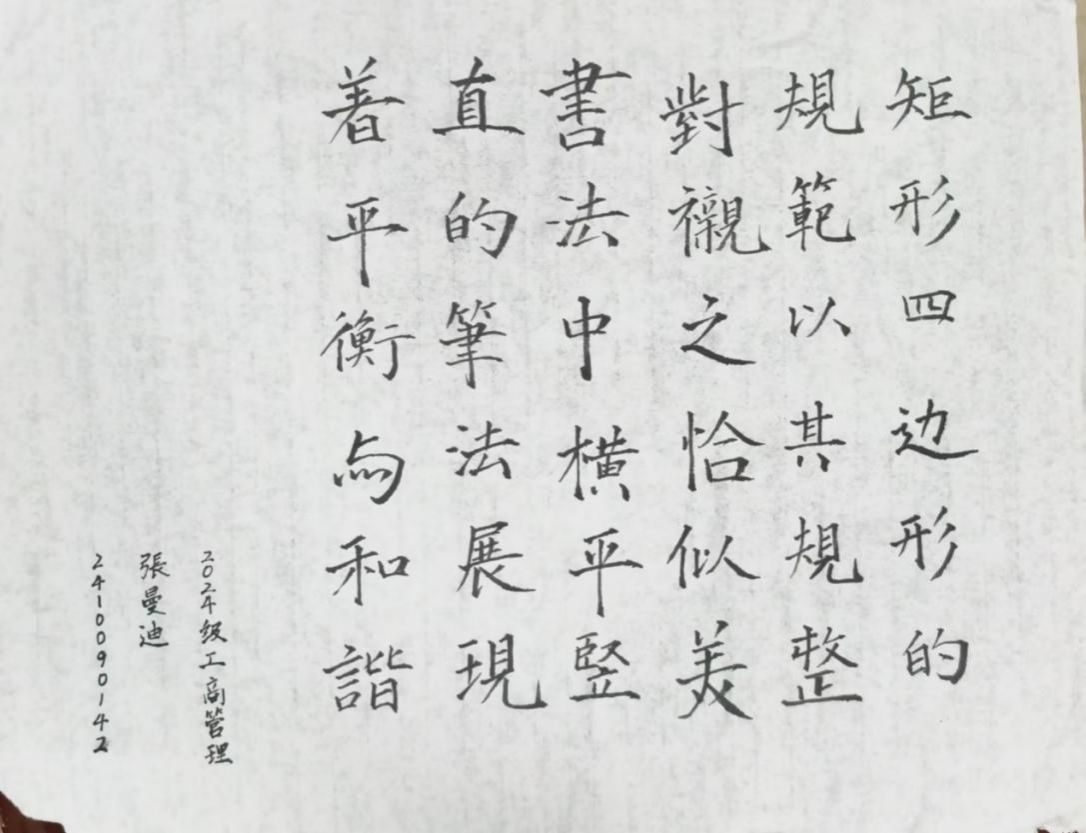 矩形四边形的
規範以其規整
對襯之恰似美
書法中橫平竪
直的筆法展現
着平衡与和諧
2024级工商管理
張曼迪
2410090142